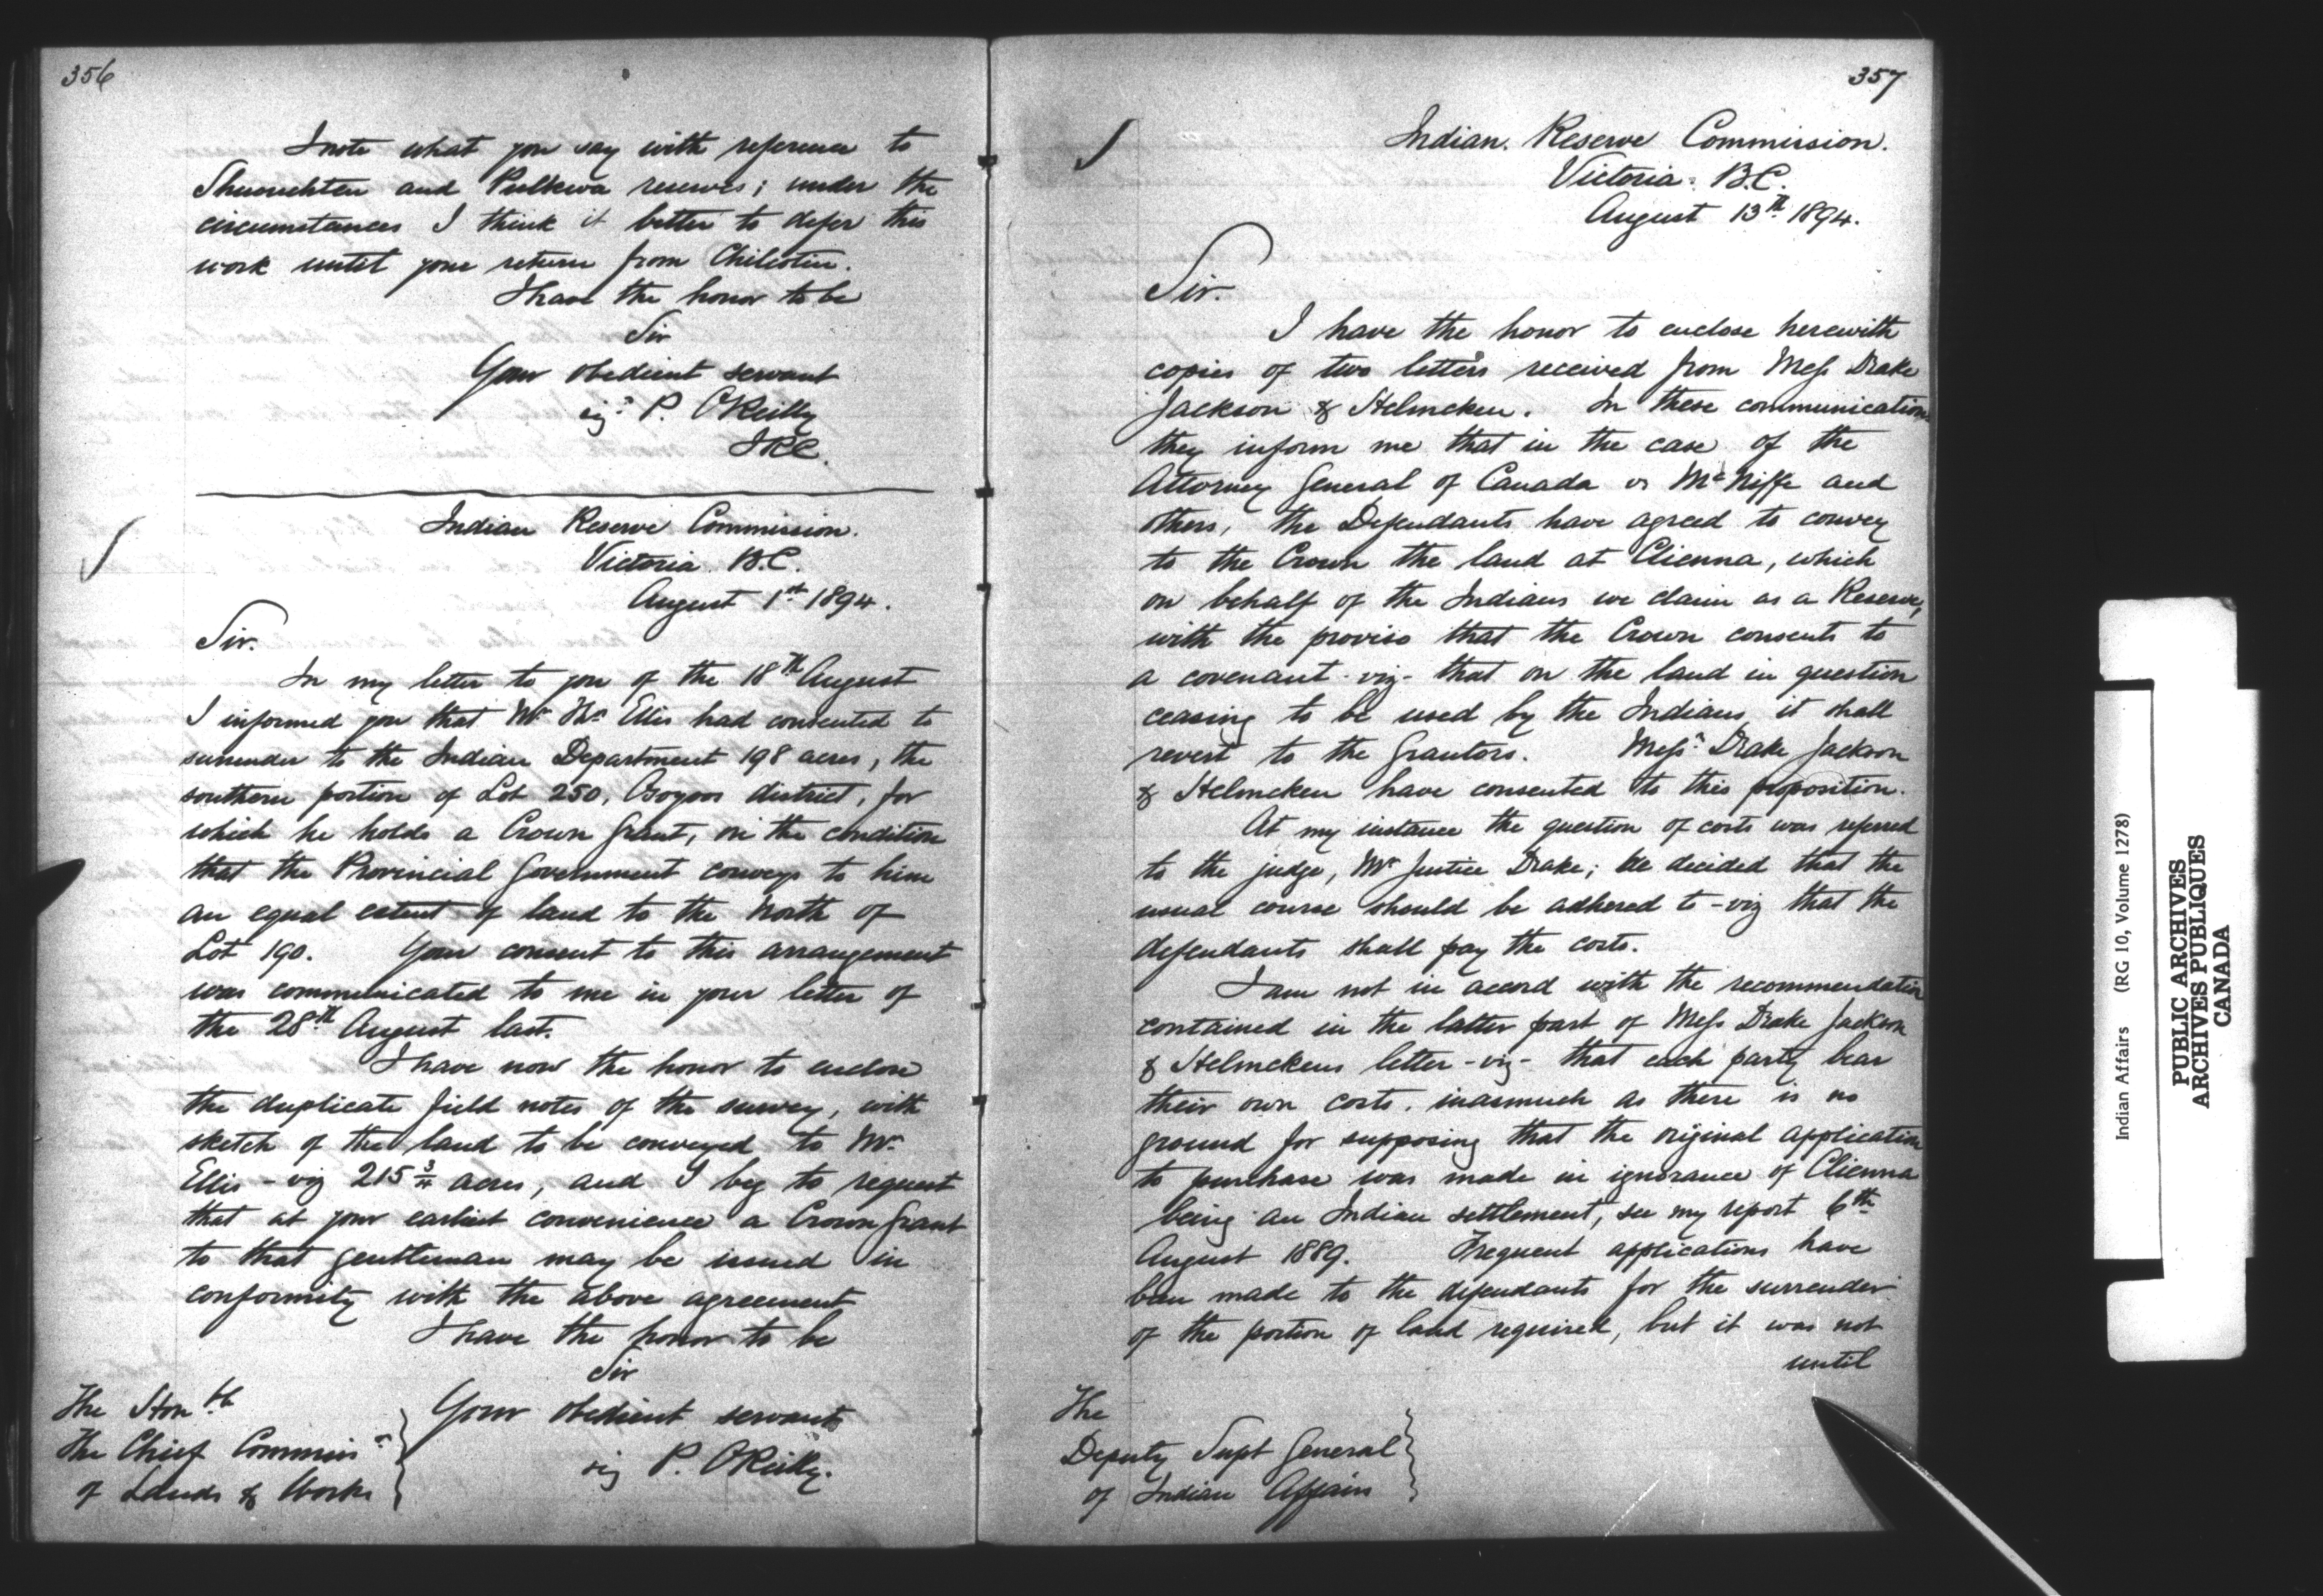 356
I note what you say with reference to
and Pulkwa reserves; under the
circumstances I think it better to defer this
work until your return from Chilcotin.
I have the honor to be
Sir
Your obedient servant
sigd P. O'Reilly
IRC.
Indian Reserve Commission.
Victoria B.C.
August 1st 1894.
Sir.
In my letter to you of the 18th August
I informed you that Mr Thos Ellis had consented to
surrender to the Indian Department 198 acres, the
southern portion of Lot 250, Osoyoos district, for
which he holds a Crown Grant, on the condition
that the Provincial Government conveys to him
an equal extent of land to the North of
Lot 190. Your consent to this arrangement
was communicated to me in your letter of
the 28th August last.
I have now the honor to enclose
the duplicate field notes of the survey, with
sketch of the land to be conveyed to Mr
Ellis - viz 215 3/4 acres, and I beg to request
that at your earliest convenience a Crown Grant
to that gentleman may be issued in
conformity with the above agreement
I have the honor to be
Sir
Your obedient servant
sig P. O'Reilly.
The Honble
The Chief Commissr
of Lands & Works
357
Indian. Reserve Commission.
Victoria. B.C.
August 13th 1894.
Sir.
I have the honor to enclose herewith
copies of two letters received from Mess Drake
Jackson & Helmcken. In these communications
they inform me that in the case of the
Attorney General of Canada vs McNiffe and
others, the Defendants have agreed to convey
to the Crown the land at Clienna, which
on behalf of the Indians we claim as a Reserve,
with the proviso that the Crown consents to
a covenant - viz - that on the land in question
ceasing to be used by the Indians it shall
revert to the Grantors. Messrs Drake Jackson
& Helmcken have consented to this proposition.
At my instance the question of costs was referred
to the judge, Mr Justice Drake; he decided that the
usual course should be adhered to - viz that the
defendants shall pay the costs.
I am not in accord with the recommendation
contained in the latter part of Mess Drake Jackson
& Helmckens letter - viz - that each party bear
their own costs. inasmuch as there is no
ground for supposing that the original application
to purchase was made in ignorance of Clienna
being an Indian settlement, see my report 6th
August 1889. Frequent applications have
been made to the defendants for the surrender
of the portion of land required, but it was not
until
The
Deputy Supt General
of Indian Affairs
Indian Affairs (RG 10, Volume 1278)
PUBLIC ARCHIVES
ARCHIVES PUBLIQUES
CANADA